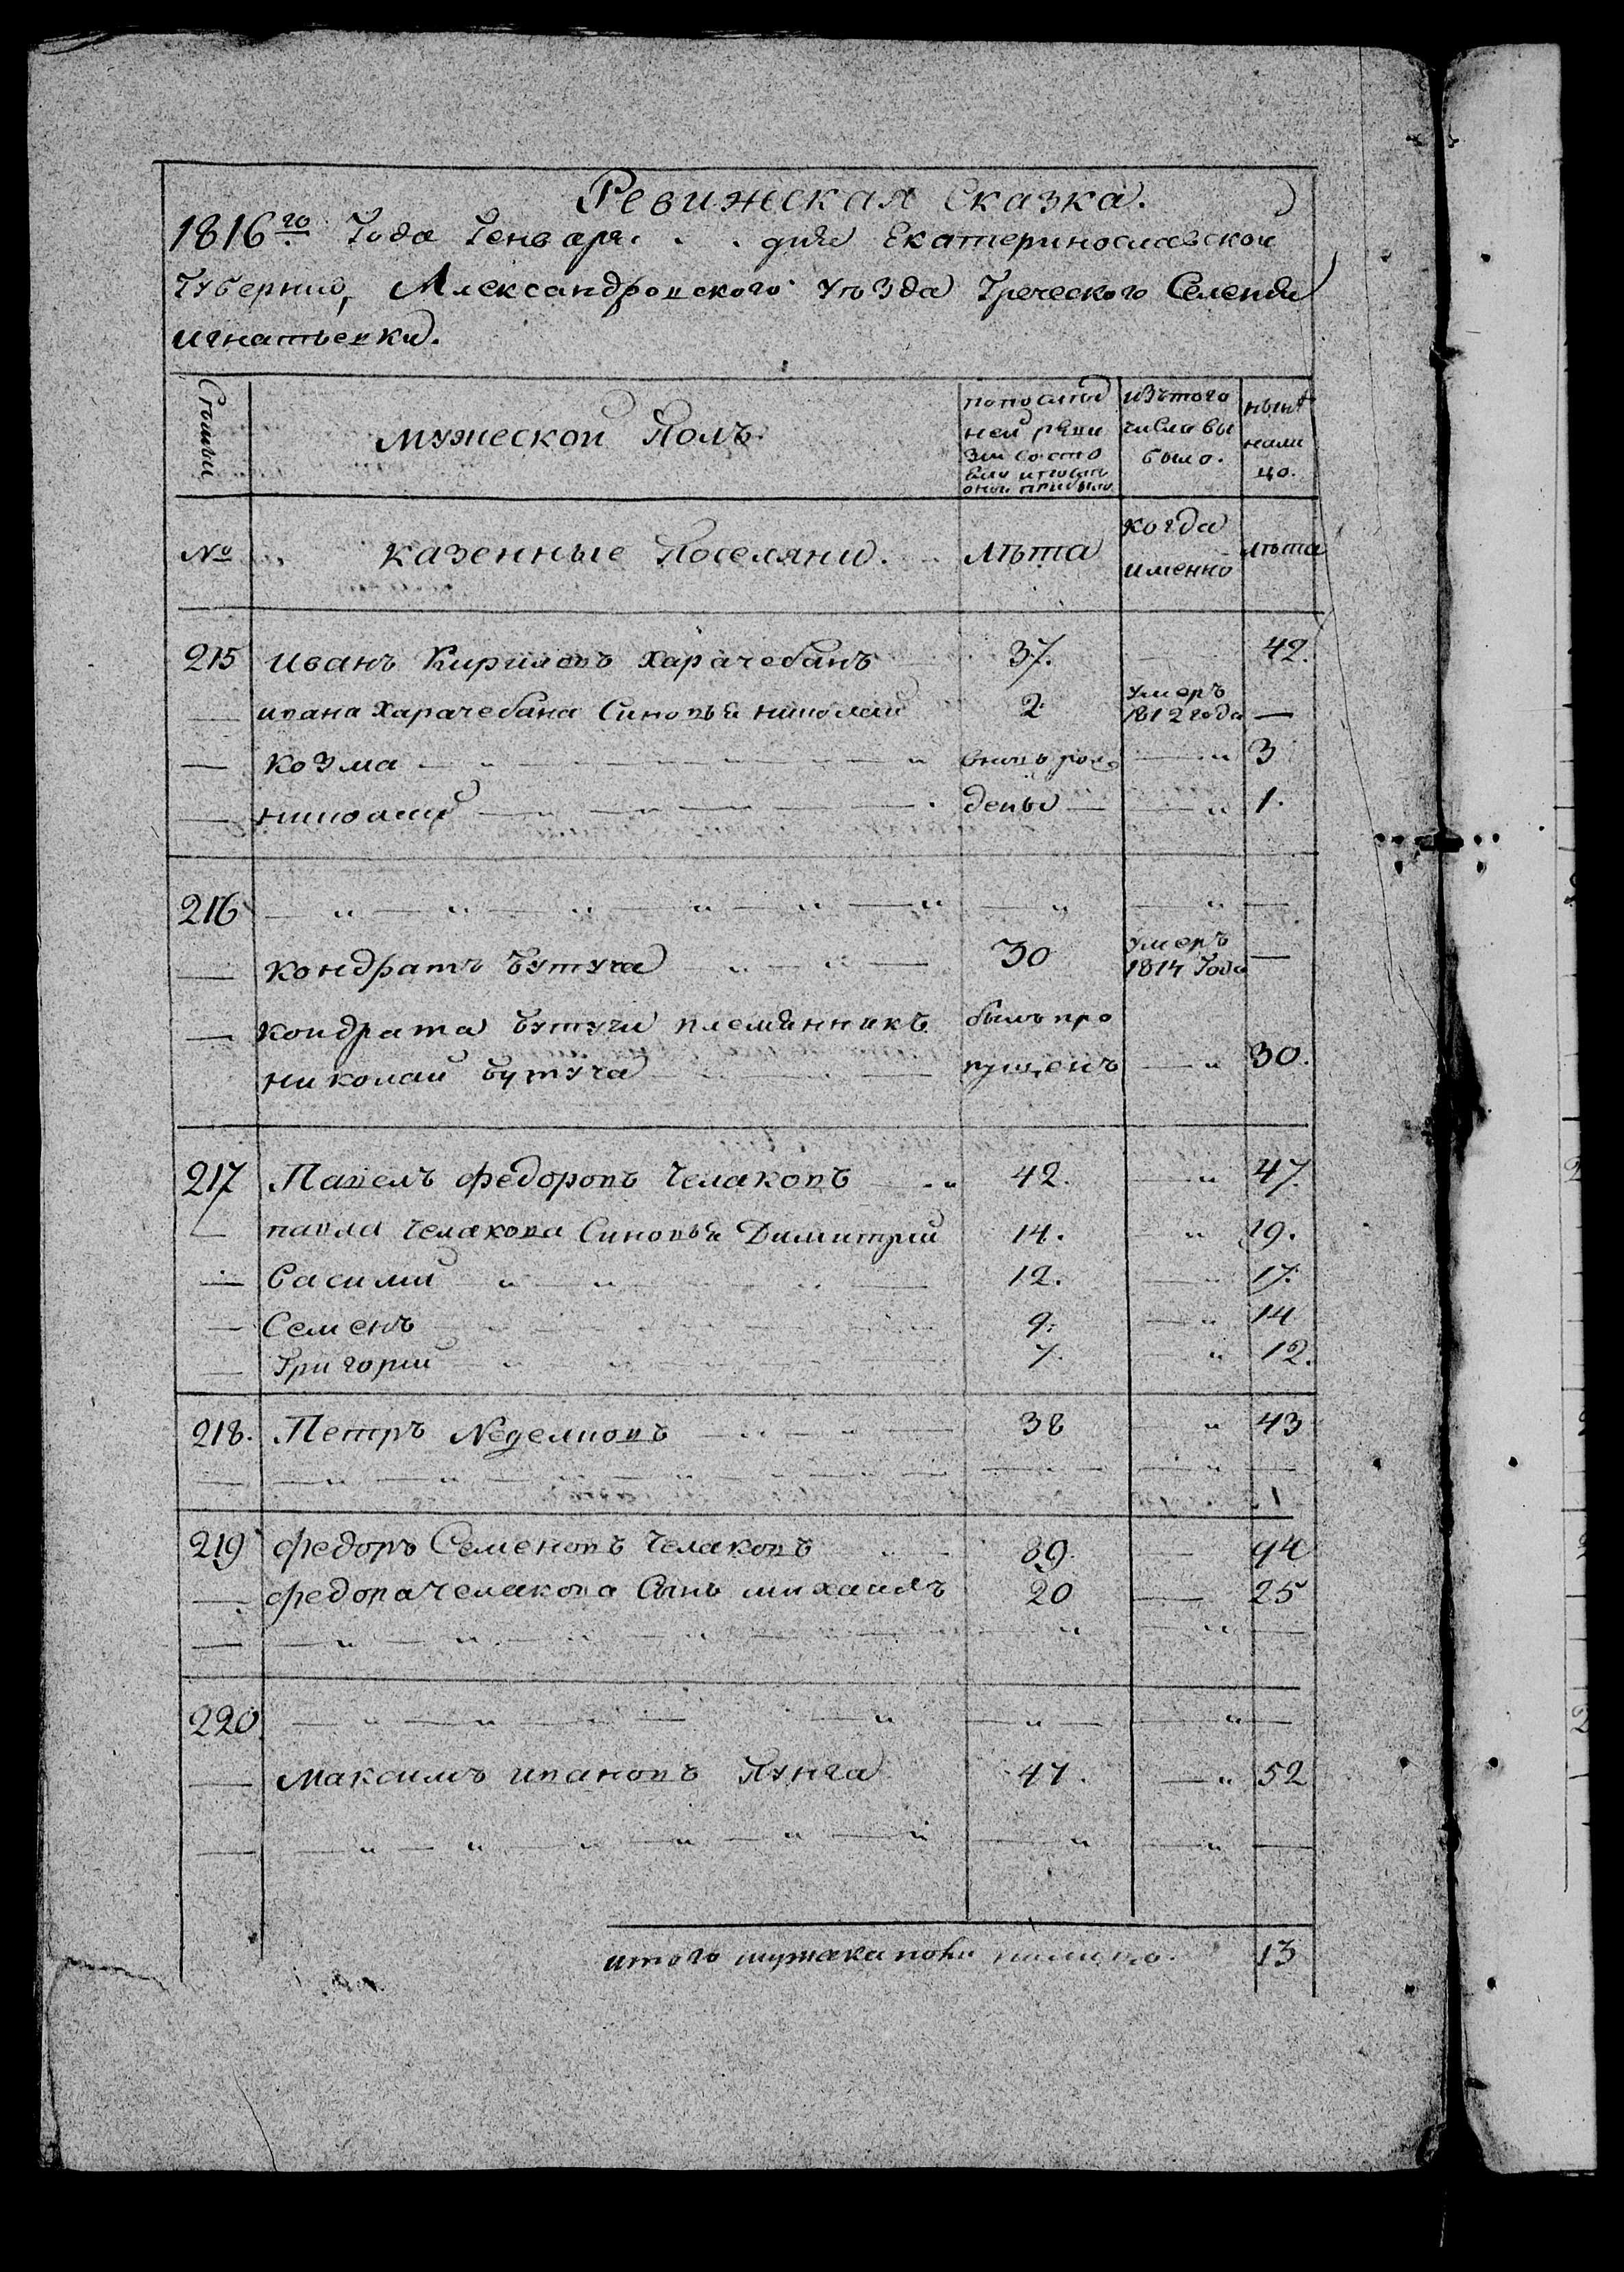 Ревижская Сказка.
1816го Года Генваря . . . дня Екатеринославской
Губернии, Александровского уѣзда Греческого Селения
игнатьевки.
Семьи
мужеской Полъ.
по послед
ней реви
зии состо
яло и после
оной прибыло
изъ того
числа вы
было.
нынѣ
нали
цо.
№ казенные Поселяни. лѣта когда именно лѣта
215 иванъ Кириловъ Харачебанъ 37. — 42.
— ивана Харачебана Синовья николай 2 умеръ 1812 года —
— козма — „ — „ вновь рож — „ 3
— николай — „ — „ дены — „ 1.
216 — „ — „ — „ — „ — „ — „ — „ — „ —
— кондратъ Бутуча — „ — „ — 30 умеръ 1814 Года —
— кондрата Бутучи племянникъ былъ про
николай Бутуча — пущенъ — „ 30.
217 Павелъ федоровъ Челаковъ — „ 42. — „ 47.
— павла Челакова Синовья Димитрий 14. — „ 19.
— Василий — „ — „ — 12. — „ 17.
— Семенъ — 9. — „ 14
— Григорий — „ — „ — 7. — „ 12.
218. Петръ — „ — „ — 38 — „ 43
— — „ — „ — „ — „ — „ — „ — — „ —
219 федоръ Семеновъ Челаковъ 89. — 94
— федора Челакова Сынъ михаилъ 20 — 25
— — „ — „ — „ — „ — „ — „ —
220 — „ — „ — „ — „ — „ — — „ —
— Максимъ ивановъ Пунга 47. — „ 52
— — „ — „ — „ — „ — „ — „ — „ — „ —
итого мужска пола налицо. 13